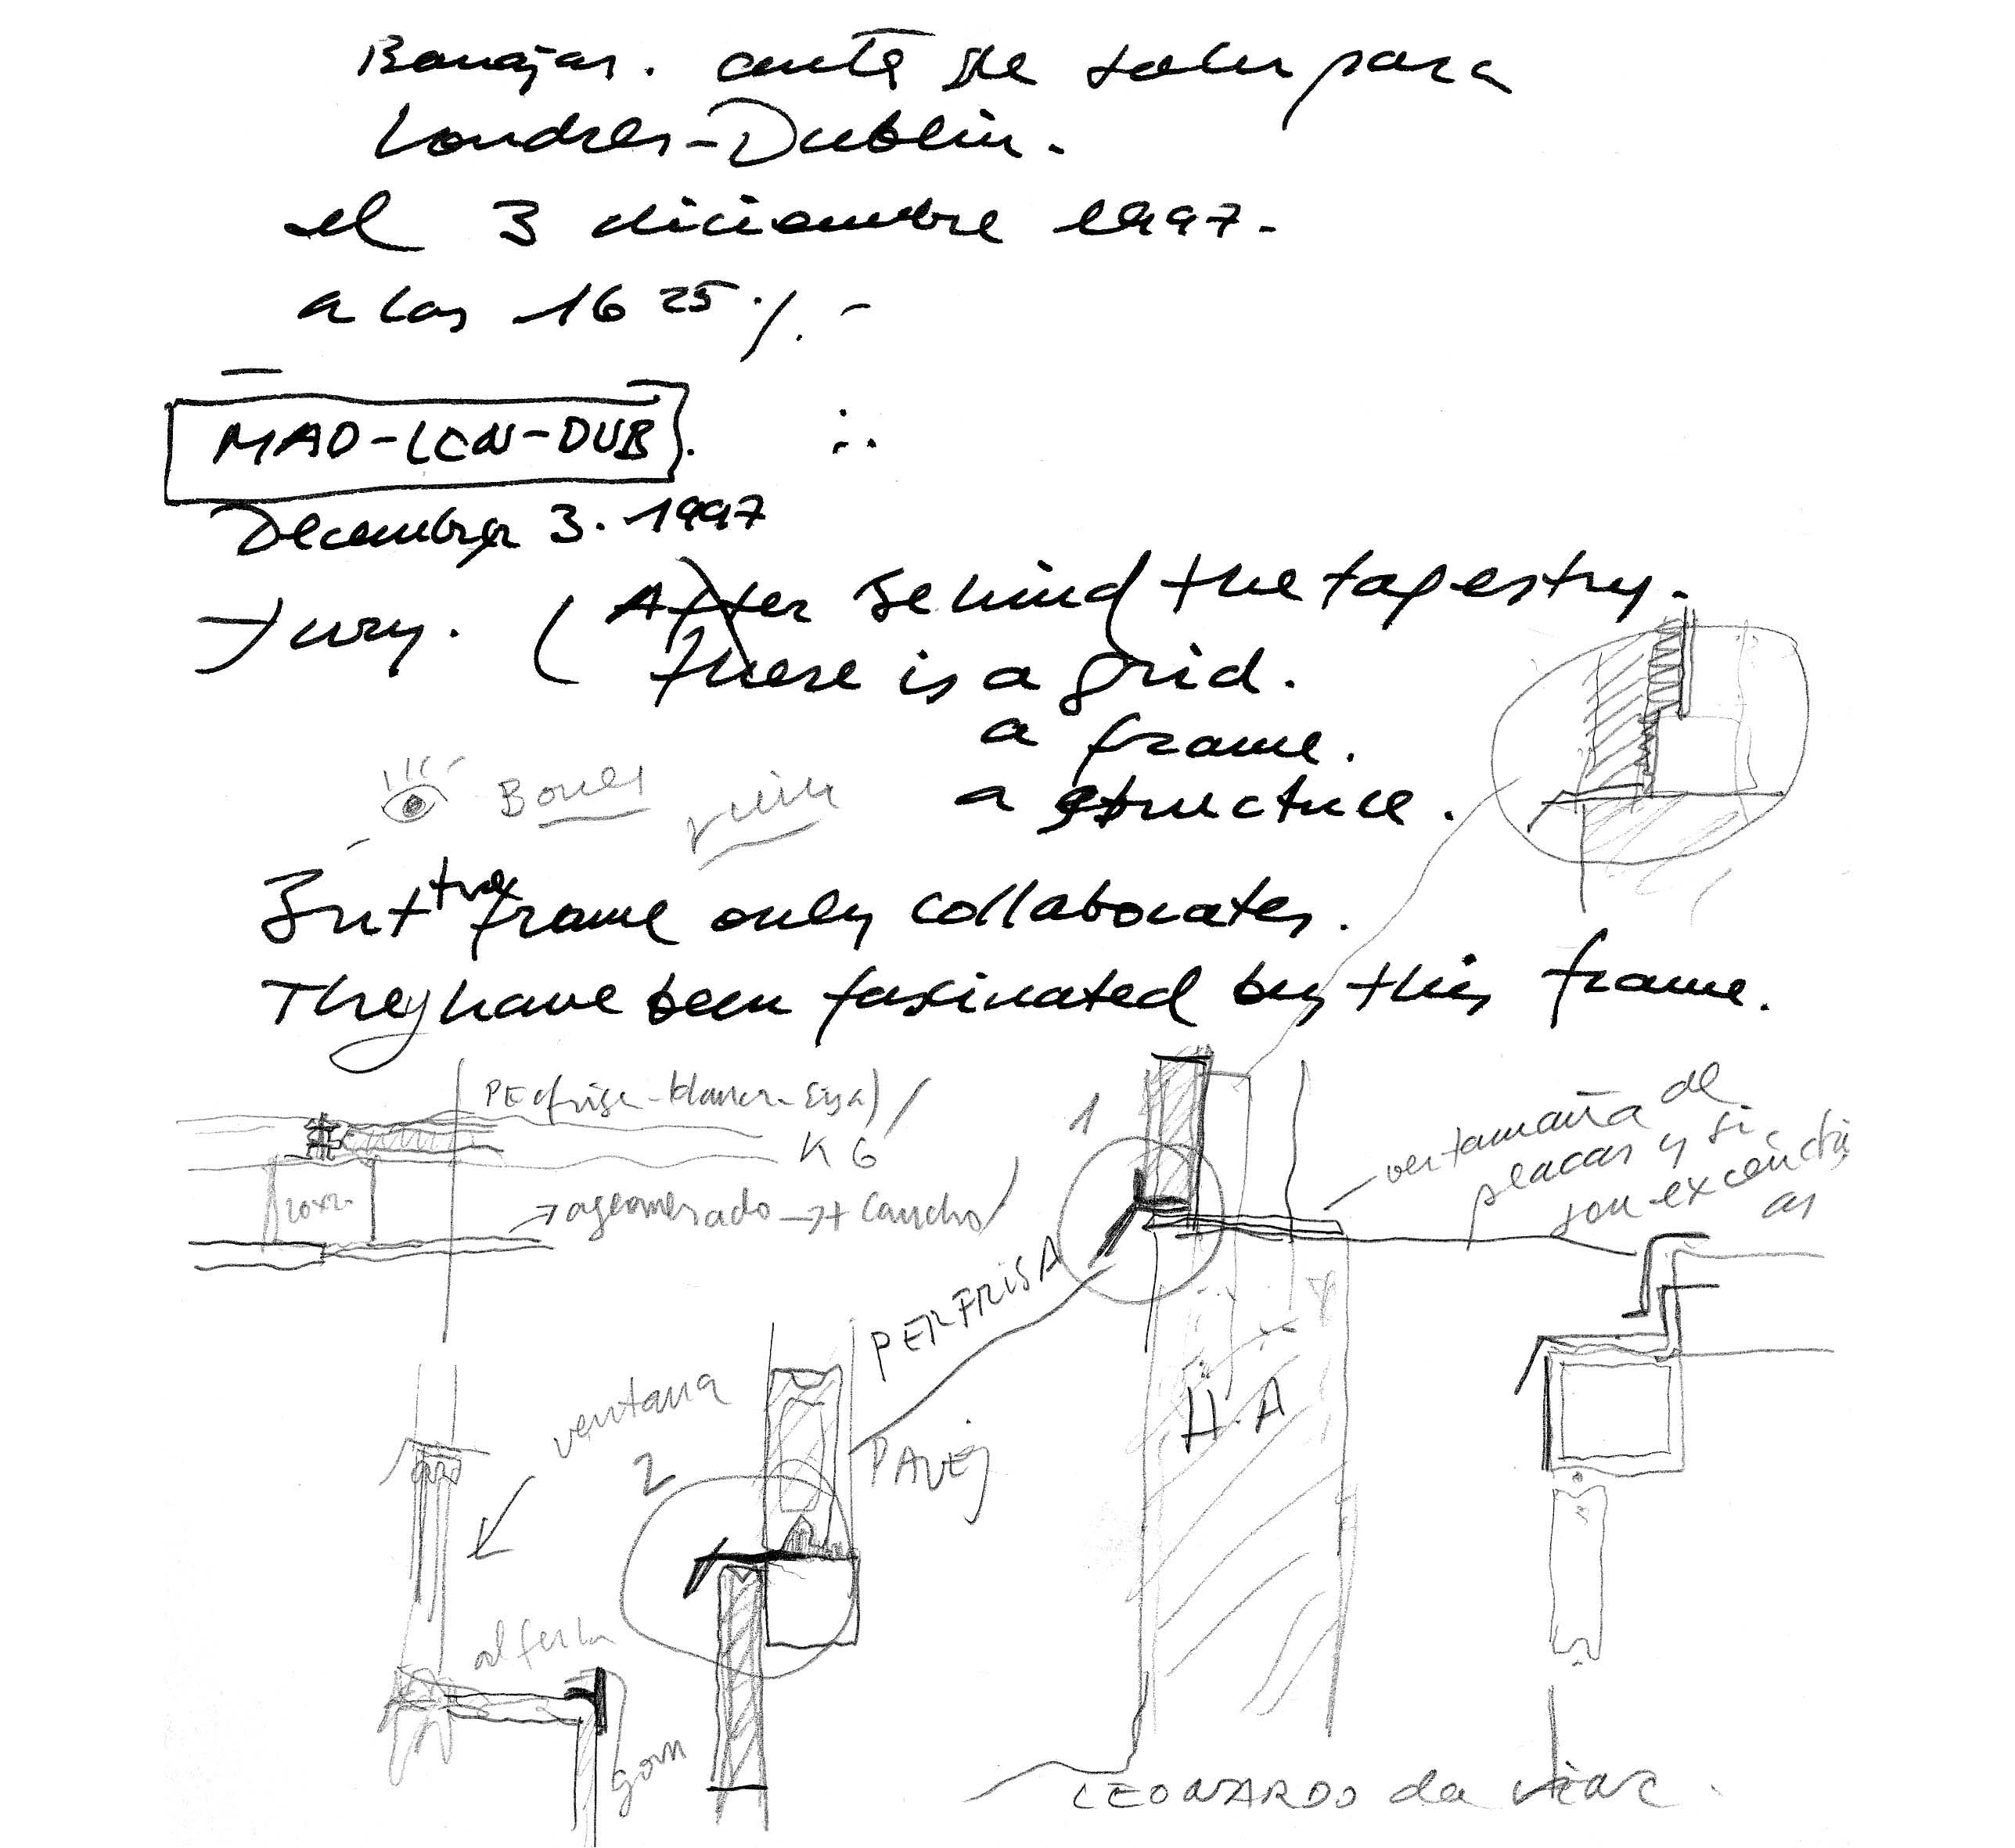 Barajas. ante de salir para
Londres-Dublin.
el 3 diciembre 1997.
a las 16 25 ./. -
MAD-LON-DUB.
December 3. 1997
Jury. ( After Behind the tapestry.
there is a grid.
a frame.
a structure.
Bones
But the frame only collaborates.
They have been fascinated by this frame.
K6
aglomerado → + caucho
1
ventamaña de
placas y si
son
PERFRISA
H.A
ventana
2
PAVEJ
gom
LEONARDO da